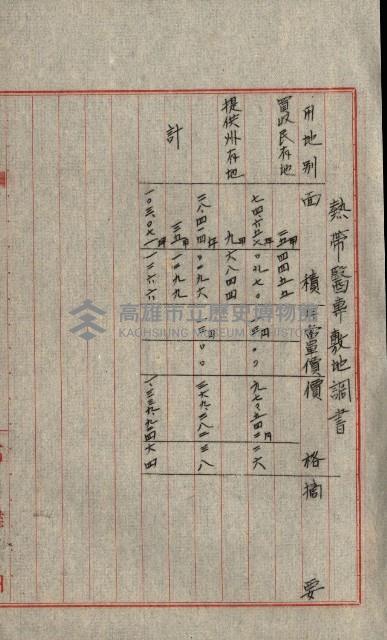 熱帶醫專敷地調書
用地別 面積 坪當單價 價格 摘要
買收民有地
二五甲四四五五
七四六五七坪〇九七〇
三円〇〇
九七〇五四二円二六
提供州有地
九甲六八四四
二八四一四坪〇〇九六
一三円〇〇
三六九二八二三八
計
三五甲一〇九九
一〇三〇七一坪一二六六
一三三九九〇四六四
高雄市立歷史博物館
KAOHSIUNG MUSEUM OF HISTORY